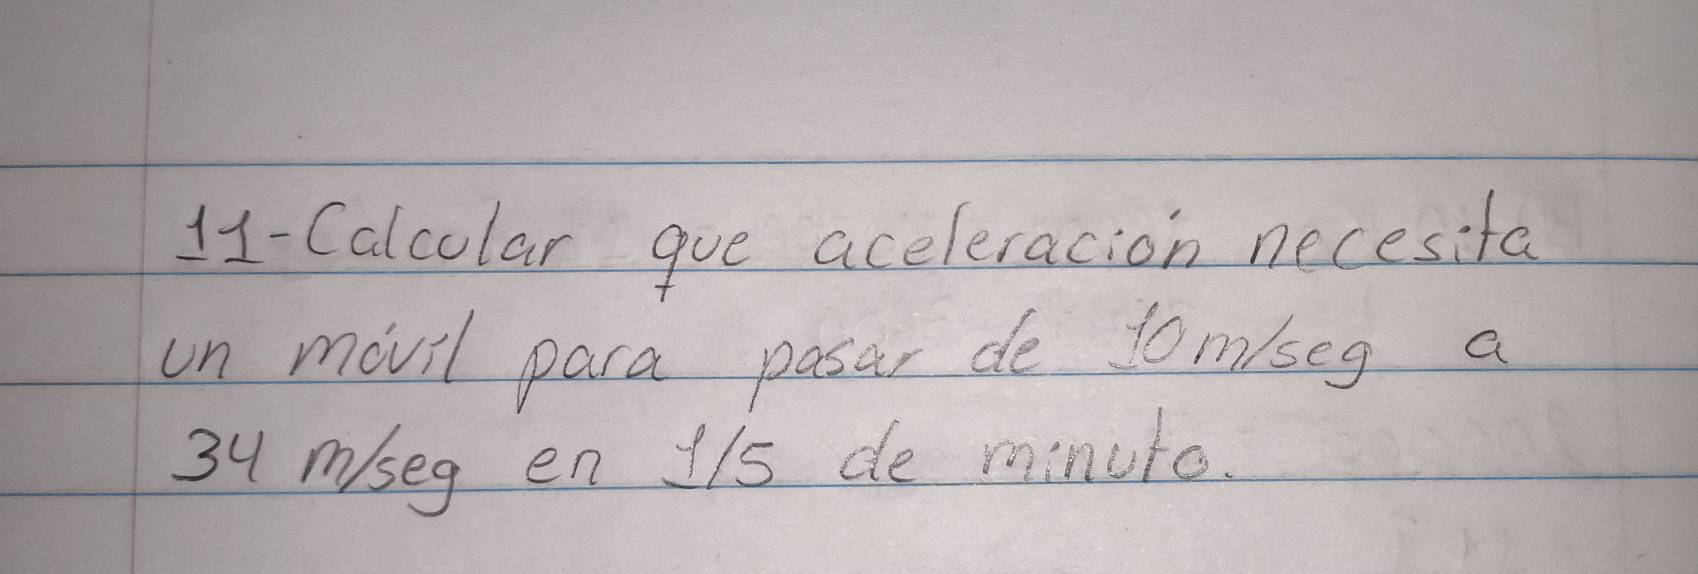 11-Calcular que aceleración necesita
un móvil para pasar de 10 m/seg a
34 m/seg en 1/5 de minuto.